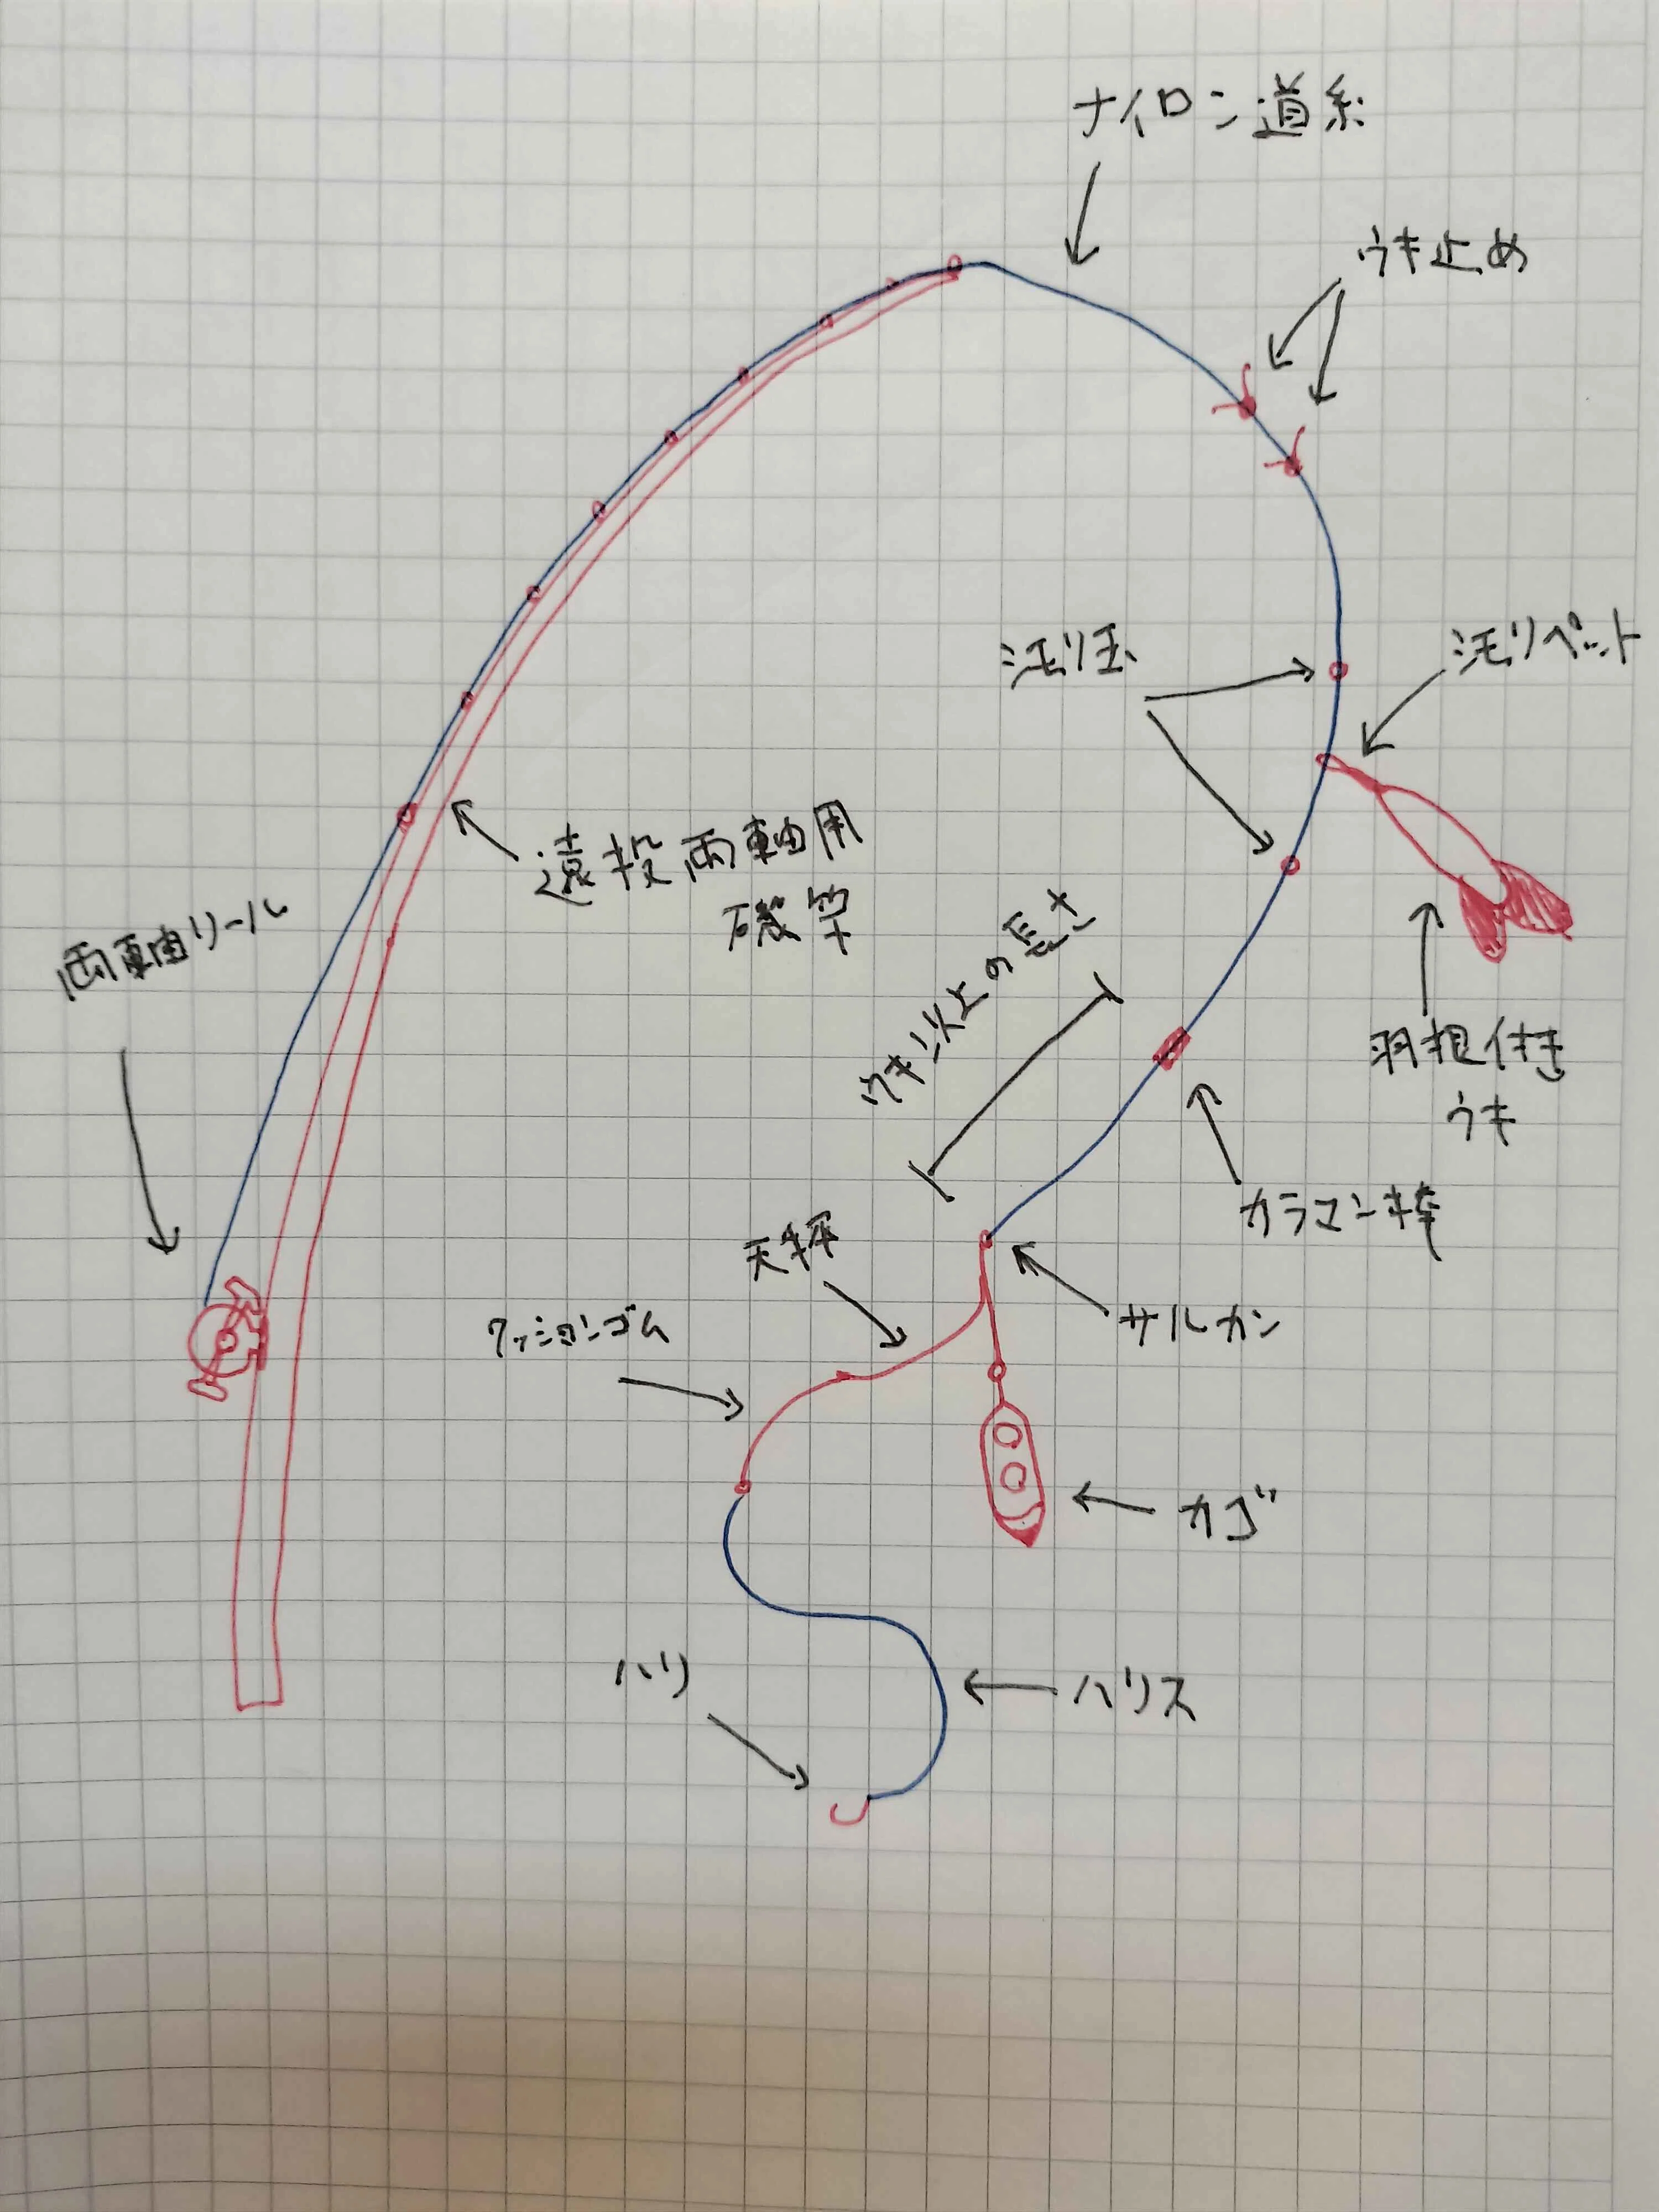 ナイロン道糸
ウキ止め
沈モリペット
沈モリ玉
遠投両軸用
磯竿
両軸リール
ウキ以上の長さ
羽根付き
ウキ
カラマン棒
天秤
サルカン
クッションゴム
カゴ
ハリ
ハリス